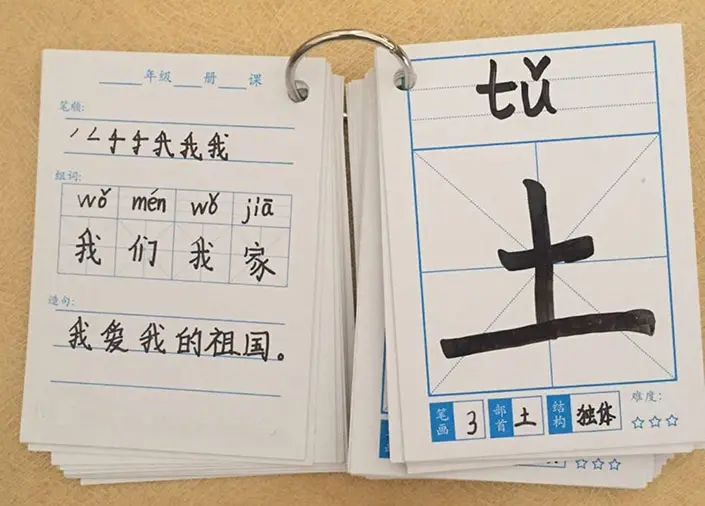 ____年级____册____课
笔顺:
丿 二 于 手 我 我 我
组词:
wǒ mén wǒ jiā
我 们 我 家
造句:
我爱我的祖国。
tǔ
土
笔画 3 部首 土 结构 独体 难度:
☆☆☆
☆☆☆